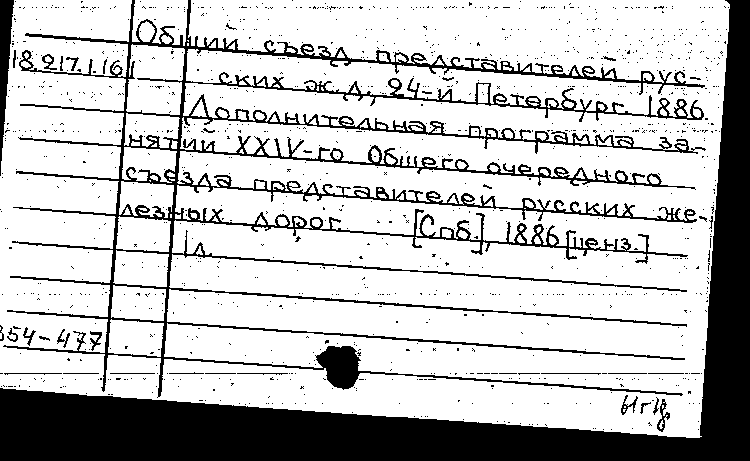 Общий съезд представителей рус-
18.217.1.161
ских ж.д., 24-й. Петербург. 1886.
Дополнительная программа за-
нятий XXIV-го Общего очередного
съезда представителей русских же-
лезных дорог. [Спб.], 1886 [ценз.]
1 л.
354-477